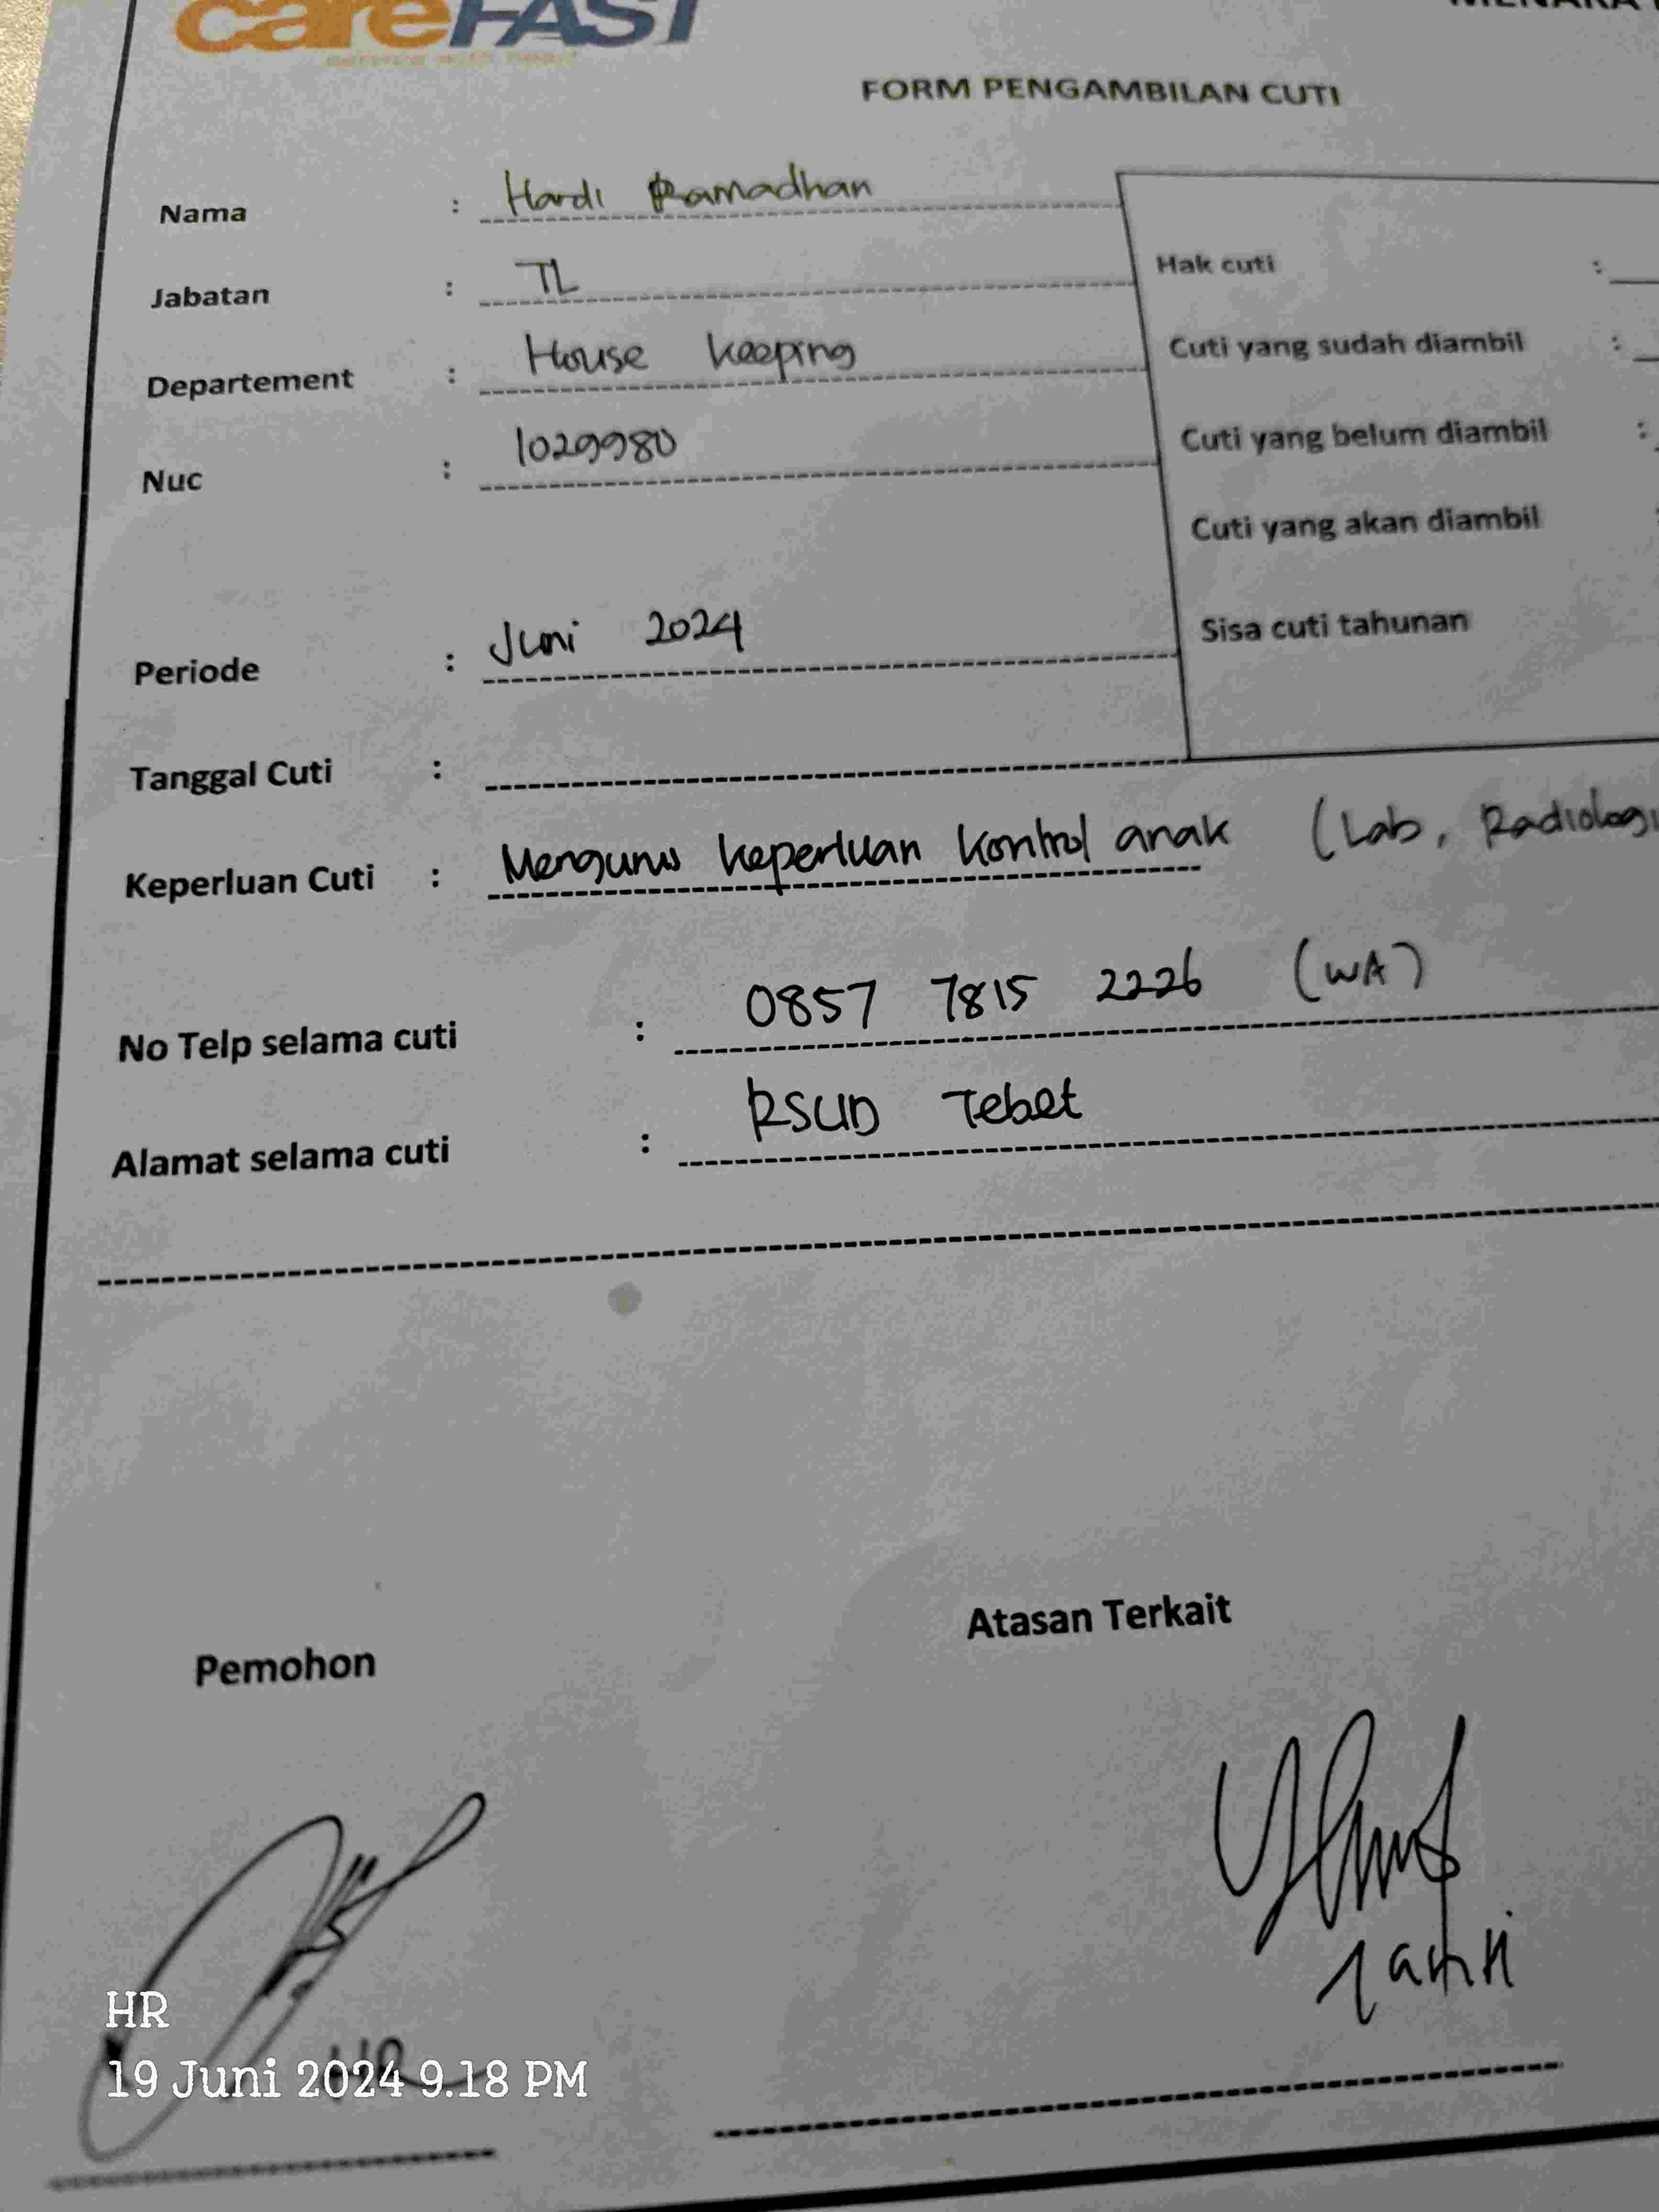 careFAST
FORM PENGAMBILAN CUTI
Nama : Hardi Ramadhan
Jabatan : TL
Departement : House Keeping
Nuc : 1029980
Hak cuti :
Cuti yang sudah diambil :
Cuti yang belum diambil :
Cuti yang akan diambil :
Sisa cuti tahunan
Periode : Juni 2024
Tanggal Cuti :
Keperluan Cuti : Mengurus keperluan kontrol anak (Lab, Radiologi
No Telp selama cuti : 0857 7815 2226 (WA)
Alamat selama cuti : RSUD Tebet
Pemohon
Atasan Terkait
HR
19 Juni 2024 9.18 PM